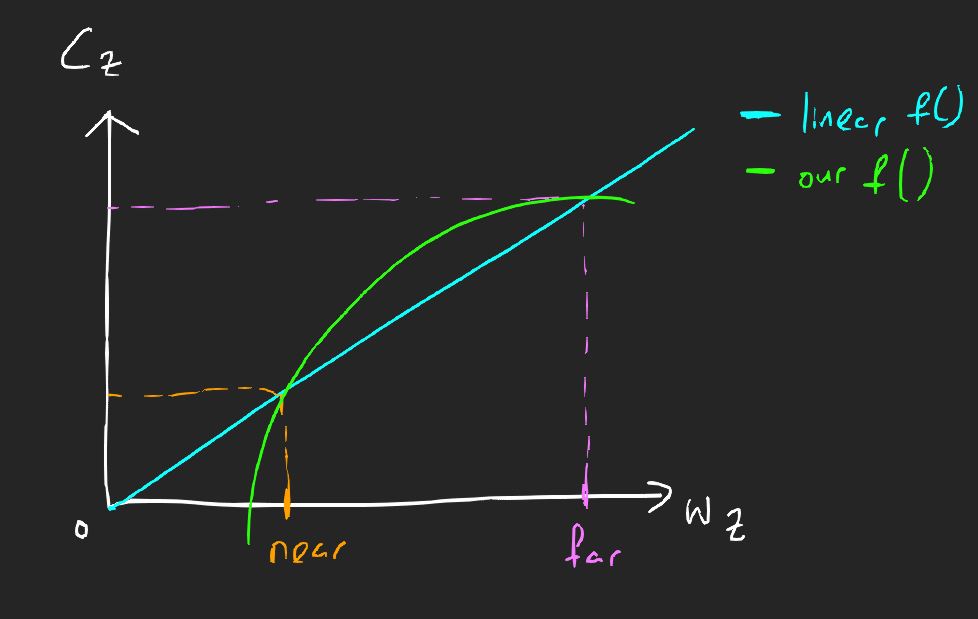 Cz
— linear f()
— our f()
0
Wz
near
far